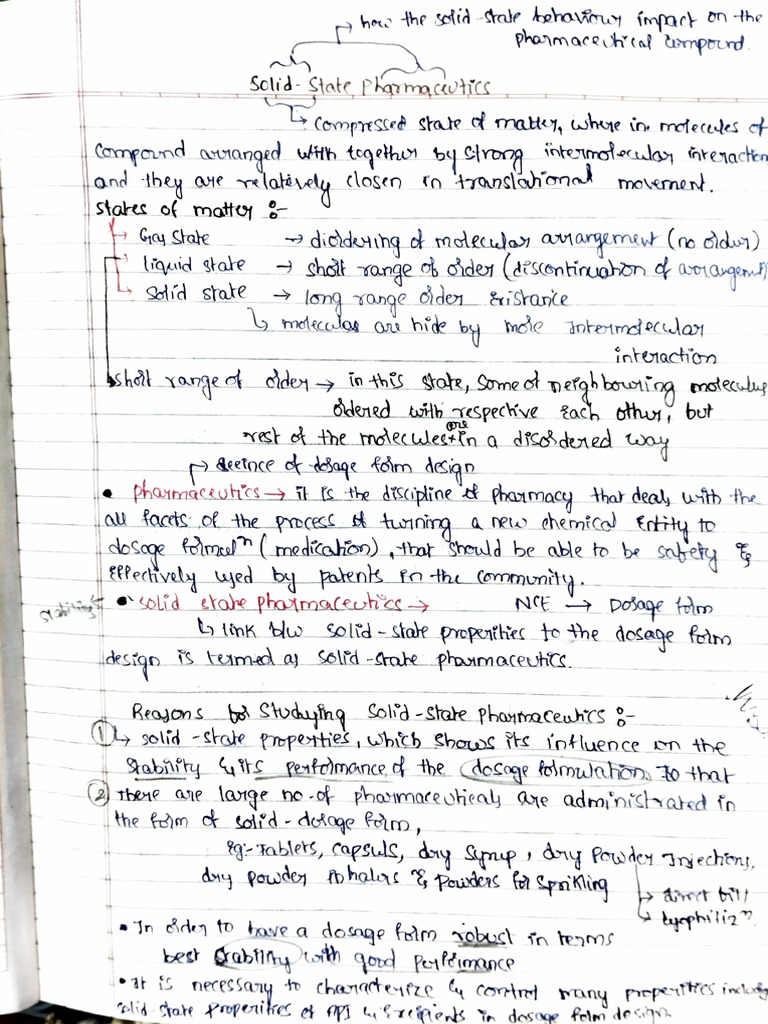 how the solid-state behaviour impact on the
pharmaceutical compound.
Solid-State Pharmaceutics
compressed state of matter, where in molecules of
compound arranged with together by strong intermolecular interaction
and they are relatively closen in translational movement.
States of matter :-
Gas State → diordering of molecular arrangement (no order)
liquid state → short range of order (discontinuation of arrangement)
solid state → long range order Existance
molecules are hide by more Intermolecular
interaction
short range of order → in this state, some of neighbouring molecules
ordered with respective each other, but
rest of the molecules are in a disordered way
Seeince of dosage form design
• pharmaceutics → it is the discipline of pharmacy that deals with the
all facets of the process of turning a new chemical Entity to
dosage formulⁿ (medication), that should be able to be safety &
Effectively used by patents in the community.
stability
• solid state pharmaceutics → NCE → Dosage form
link b/w solid-state properities to the dosage form
design is termed as solid-state pharmaceutics.
Reasons for Studying Solid-state pharmaceutics :-
① solid-state properties, which shows its influence on the
stability & its performance of the dosage formulation. to that
② There are large no. of pharmaceuticals are administrated in
the form of solid-dosage form,
Eg:- Tablets, capsuls, dry syrup, dry Powder Injections,
dry powder Inhalers & Powders for Sprikling
direct fill
lyophilizⁿ
• In order to have a dosage form robust in terms
best stability with good performance
• It is necessary to characterize & control many properities including
solid-state properities of API & Excipients in dosage form design.